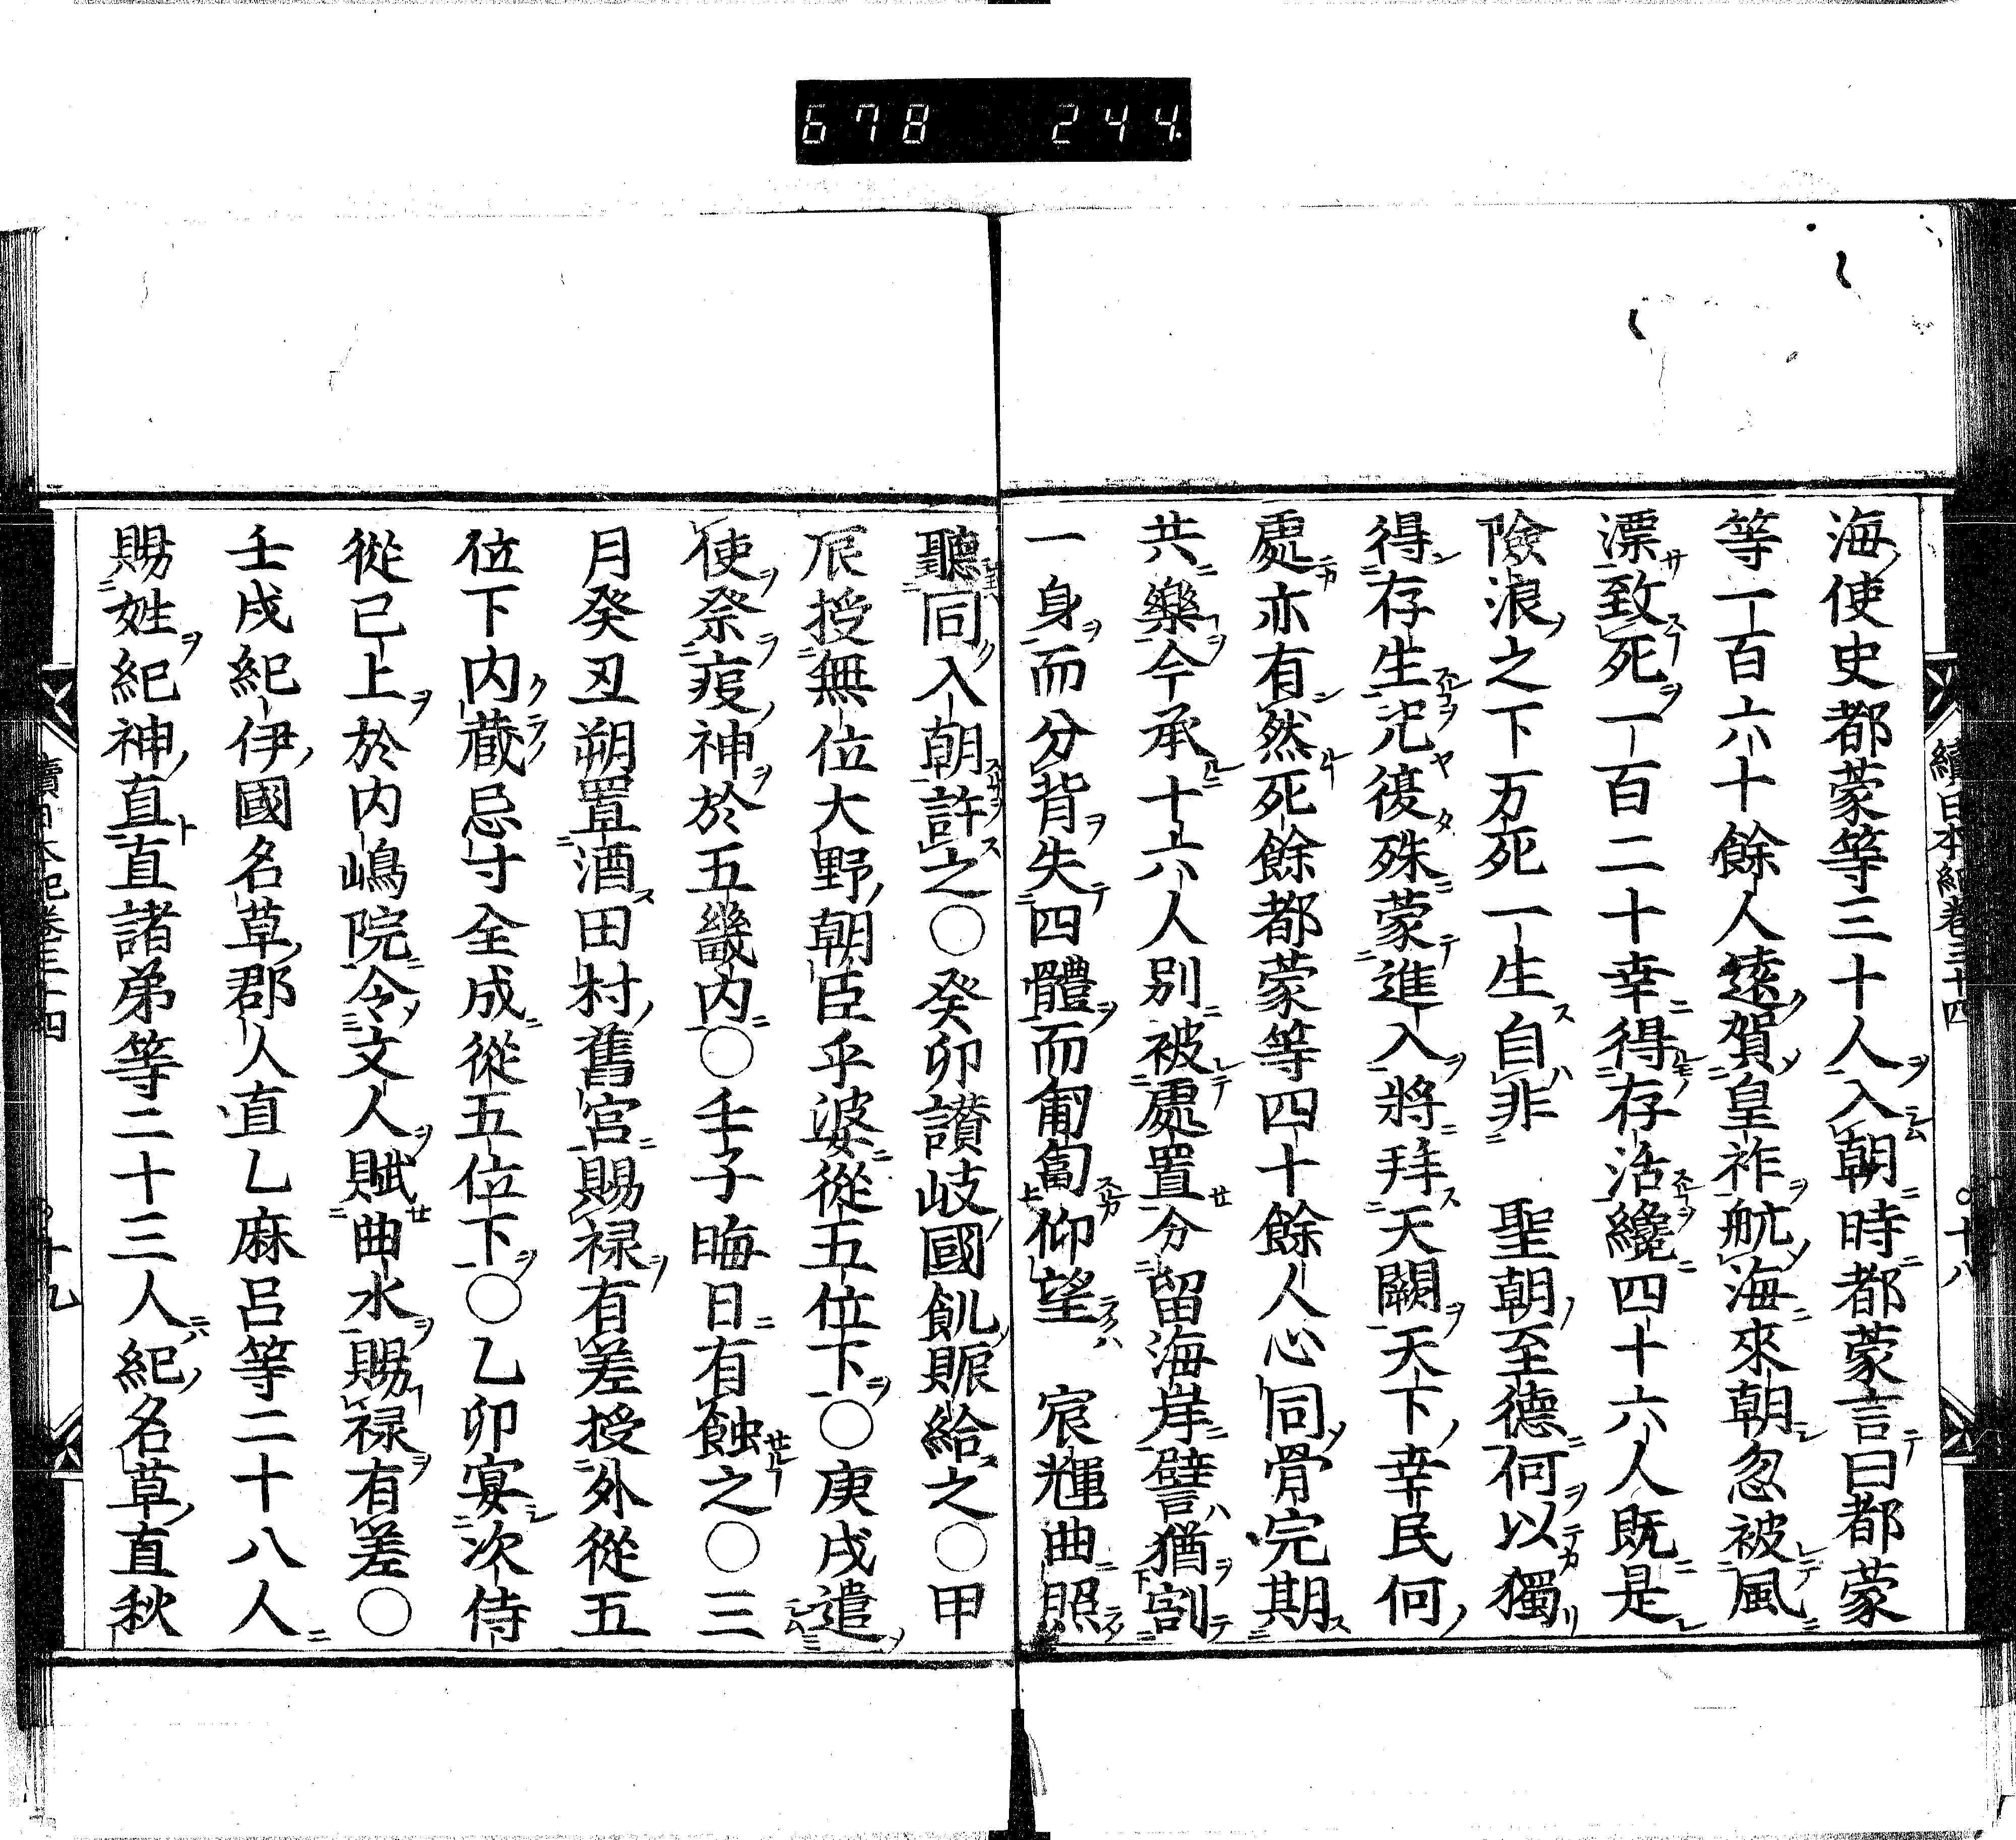 678 244.
續日本紀卷三十四
○十八
海使史都蒙等三十人入朝時都蒙言曰都蒙
等一百六十餘人遠賀皇祚航海來朝忽被風
漂致死一百二十幸得存活纔四十六人既是
險浪之下万死一生自非 聖朝至德何以獨
得存生況復殊蒙進入將拜天闕天下幸民何
處亦有然死餘都蒙等四十餘人心同骨完期
共樂今承十六人別被處置分留海岸譬猶割
一身而分背失四體而匍匐仰望 宸輝曲照
聽同入朝許之○癸卯讃岐國飢賑給之○甲
辰授無位大野朝臣乎婆從五位下○庚戌遣
使祭疫神於五畿内○壬子晦日有蝕之○三
月癸丑朔置酒田村舊宮賜禄有差授外從五
位下内蔵忌寸全成從五位下○乙卯宴次侍
從已上於内嶋院令文人賦曲水賜禄有差○
壬戌紀伊國名草郡人直乙麻呂等二十八人
賜姓紀神直直諸弟等二十三人紀名草直秋
續日本紀卷三十四
○十九